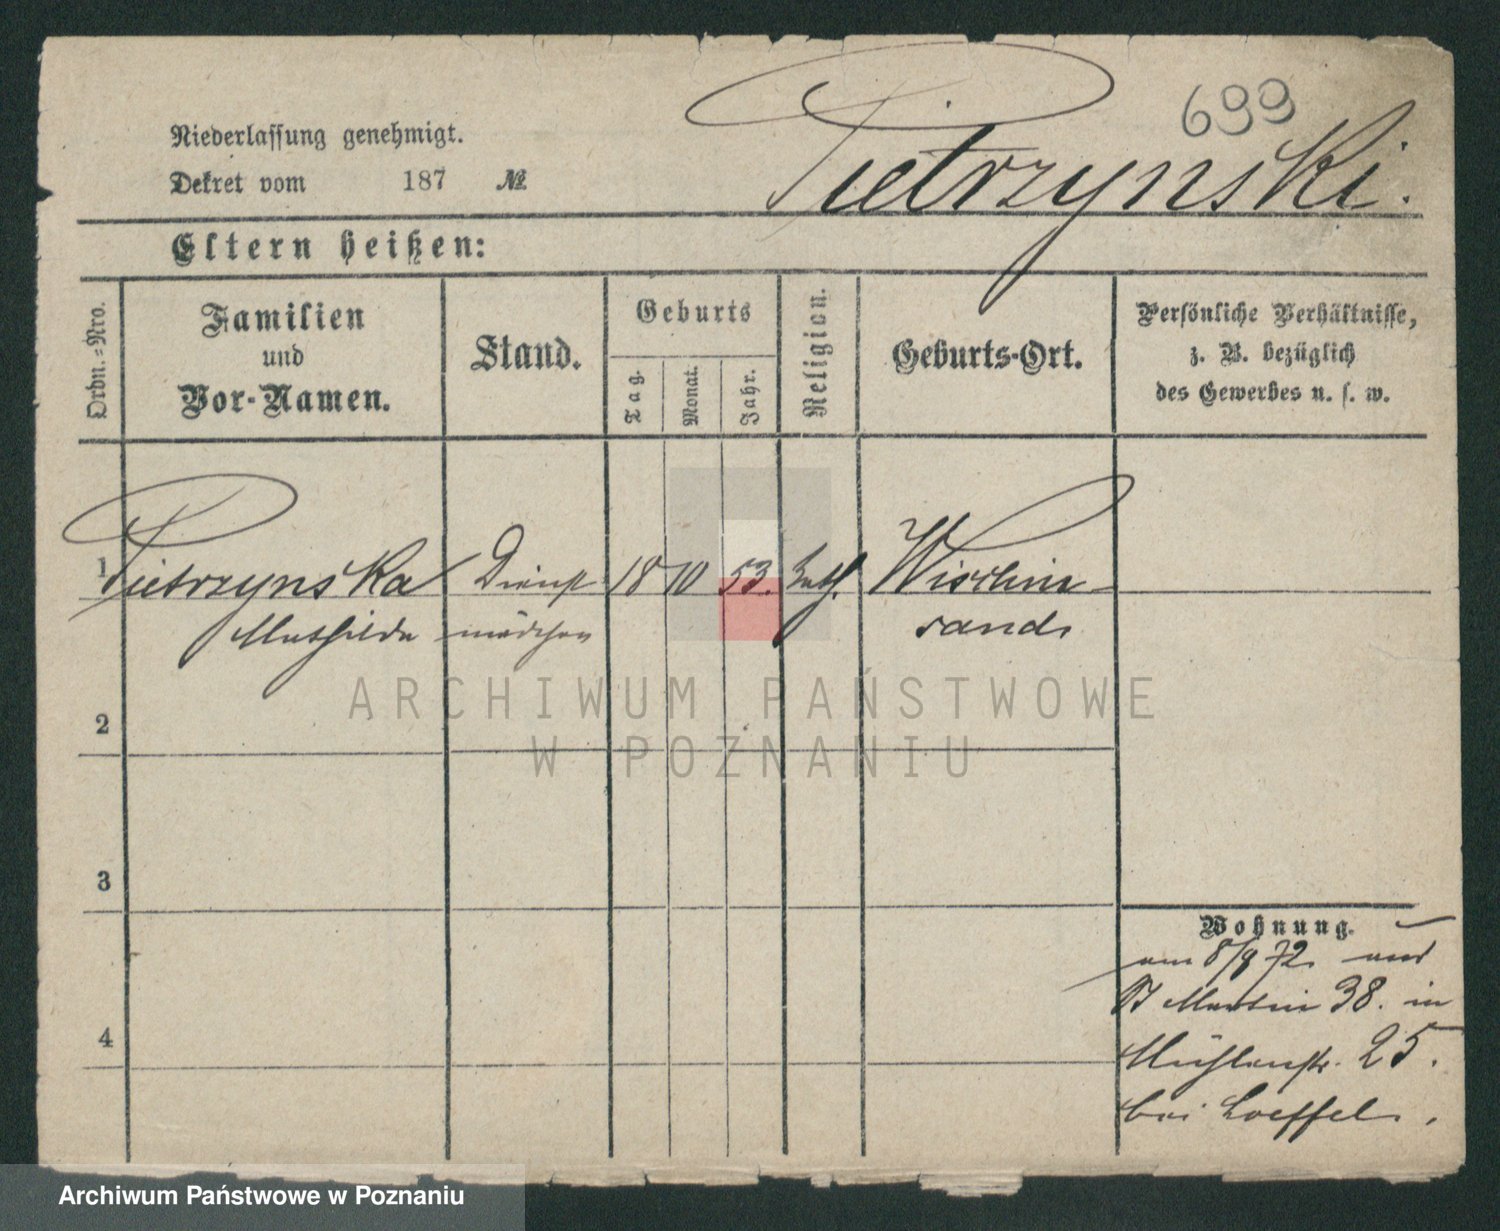 699
Pietrzynski.
Niederlassung genehmigt.
Dekret vom 187 №
Eltern heißen:
Ordn.=Nro.
Familien
und
Vor-Namen.
Stand.
Geburts
Tag.
Monat.
Jahr.
Religion.
Geburts-Ort.
Persönliche Verhältnisse,
z. B. bezüglich
des Gewerbes u. s. w.
1 Pietrzynska Dienst 18 10 53. kath.
Mathilde mädchen
sand
2
3
4
Wohnung.
am 8/9 72 aus
St Martin 38. in
Mühlenstr. 25.
bei Loeffel.
ARCHIWUM PAŃSTWOWE
W POZNANIU
Archiwum Państwowe w Poznaniu